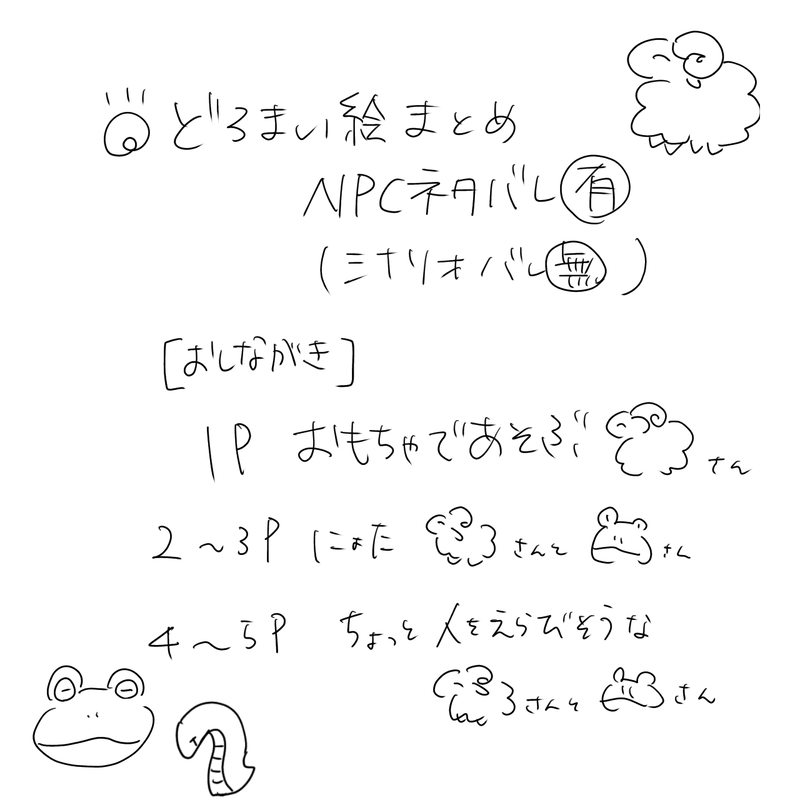 どろまい絵まとめ
NPCネタバレ有
(シナリオバレ無)
[おしながき]
1P おもちゃであそぶ さん
2〜3P にょた さんと さん
4〜5P ちょっと人をえらびそうな
さんと さん